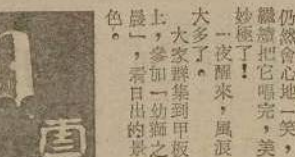 仍然會心地一笑，
繼續把它唱完，美
妙極了！
一夜醒來，風浪
大多了。
大家群集到甲板
上，參加「幼獅之
晨」，看日出的景
色。